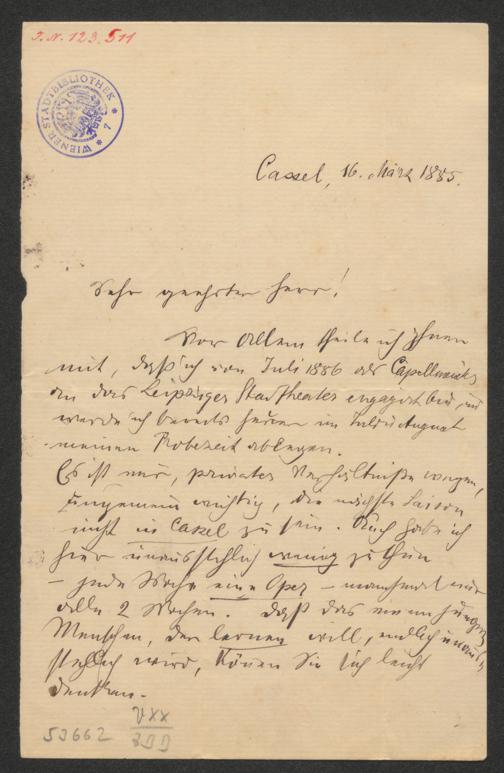 J.N. 123.511
WIENER STADTBIBLIOTHEK * 7 *
Cassel, 16. März 1885.
Sehr geehrter Herr!
Vor Allem theile ich Ihnen
mit, daß ich von Juli 1886 als Capellmeister
an das Leipziger Stadttheater engagirt bin, und
werde ich bereits heuer im Juli u August
meinen Probezeit ablegen.
Es ist mir, privater Verhältniße wegen,
ungemein wichtig, die nächste Saison
nicht in Cassel zu sein. Auch habe ich
hier unausstehlich wenig zu thun
– jede Woche eine Oper – manchmal nur
alle 2 Wochen. Daß das einem jungen
Menschen, der lernen will, endlich unaus-
stehlich wird, können Sie sich leicht
denken. –
53662